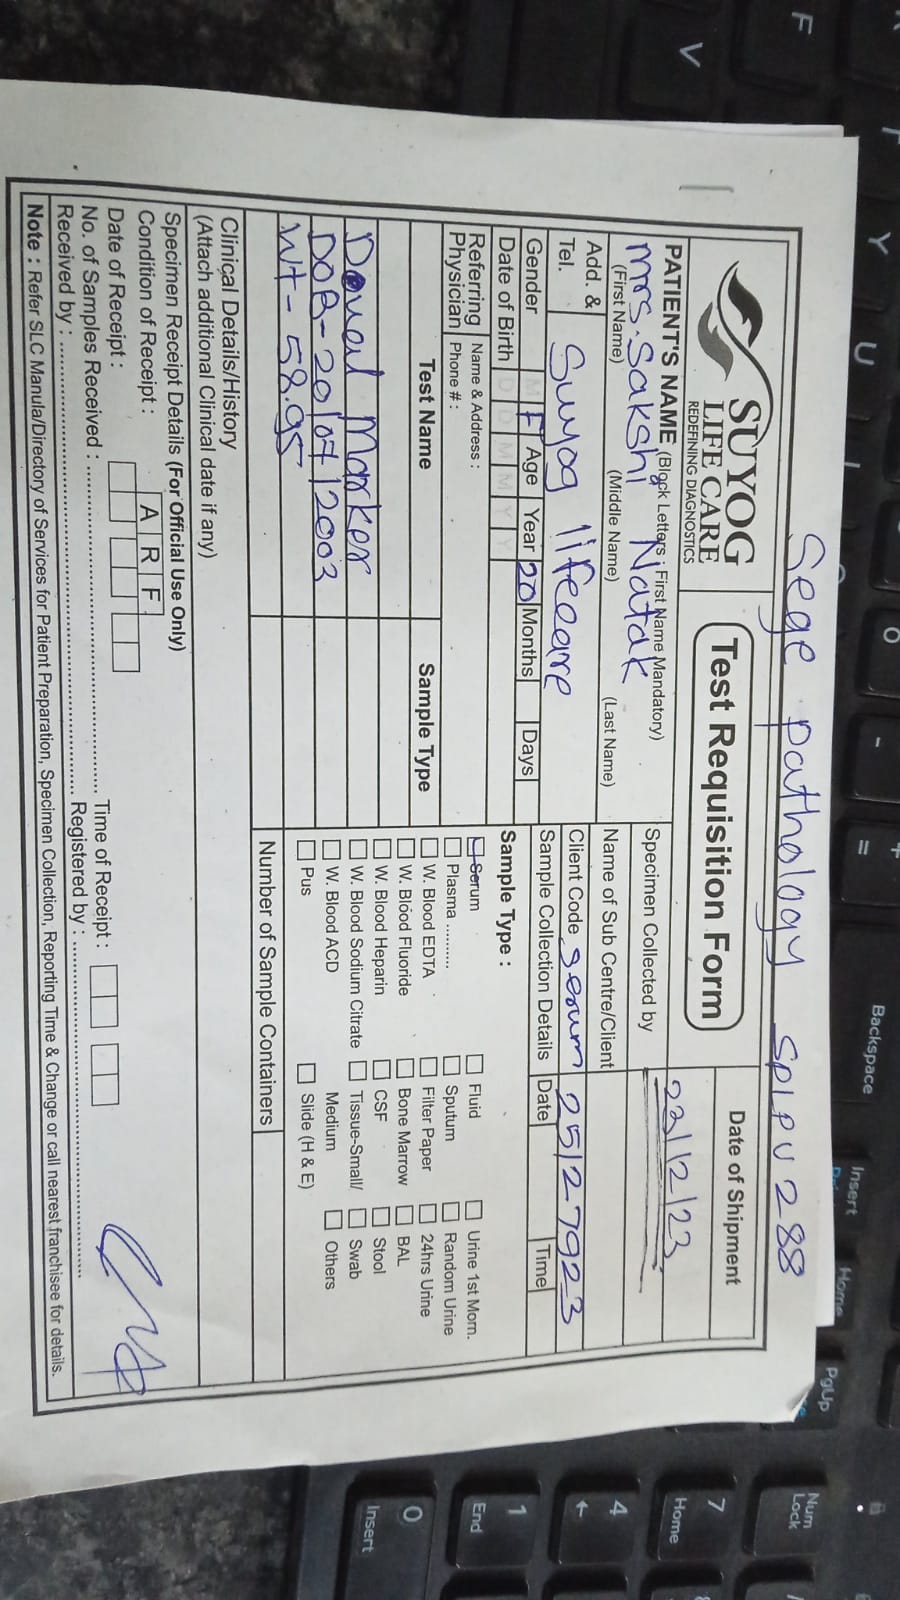 Sege pathology SPLPU 288
SUYOG
LIFE CARE
REDEFINING DIAGNOSTICS
Test Requisition Form
Date of Shipment
22/12/23
PATIENT'S NAME (Block Letters ; First Name Mandatory)
Mrs. Sakshi Natak
(First Name) (Middle Name) (Last Name)
Specimen Collected by
Name of Sub Centre/Client
Add. &
Tel. Suyog lifecare
Client Code serum 25127923
Gender M F Age Year 20 Months Days
Sample Collection Details Date Time
Date of Birth D D M M Y Y
Sample Type :
Referring Physician
Name & Address :
Phone # :
Test Name Sample Type
Doual Marker
DOB-20/07/2003
Wt- 58.95
Serum Fluid Urine 1st Morn.
Plasma .......... Sputum Random Urine
W. Blood EDTA Filter Paper 24hrs Urine
W. Blood Fluoride Bone Marrow BAL
W. Blood Heparin CSF Stool
W. Blood Sodium Citrate Tissue-Small/ Swab
W. Blood ACD Medium Others
Pus Slide (H & E)
Number of Sample Containers
Clinical Details/History
(Attach additional Clinical date if any)
Specimen Receipt Details (For Official Use Only)
Condition of Receipt : A R F
Date of Receipt : Time of Receipt :
No. of Samples Received :
Received by : Registered by :
Note : Refer SLC Manula/Directory of Services for Patient Preparation, Specimen Collection, Reporting Time & Change or call nearest franchisee for details.
F
V
Y
U
O
-
=
+
Backspace
Insert
Home
PgUp
Num
Lock
7
Home
4
←
1
End
0
Insert